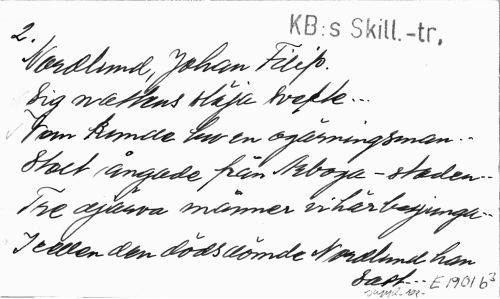 KB:s Skill.-tr.
2.
Nordlund, Johan Filip.
Sig nattens slöja svept...
Vem kunde en ogärningsman...
Stolt ångade från Arboga-staden...
Tre djärva männer vi här besjunga...
I cellen den dödsdömde Nordlund han
satt... E 1901 b³